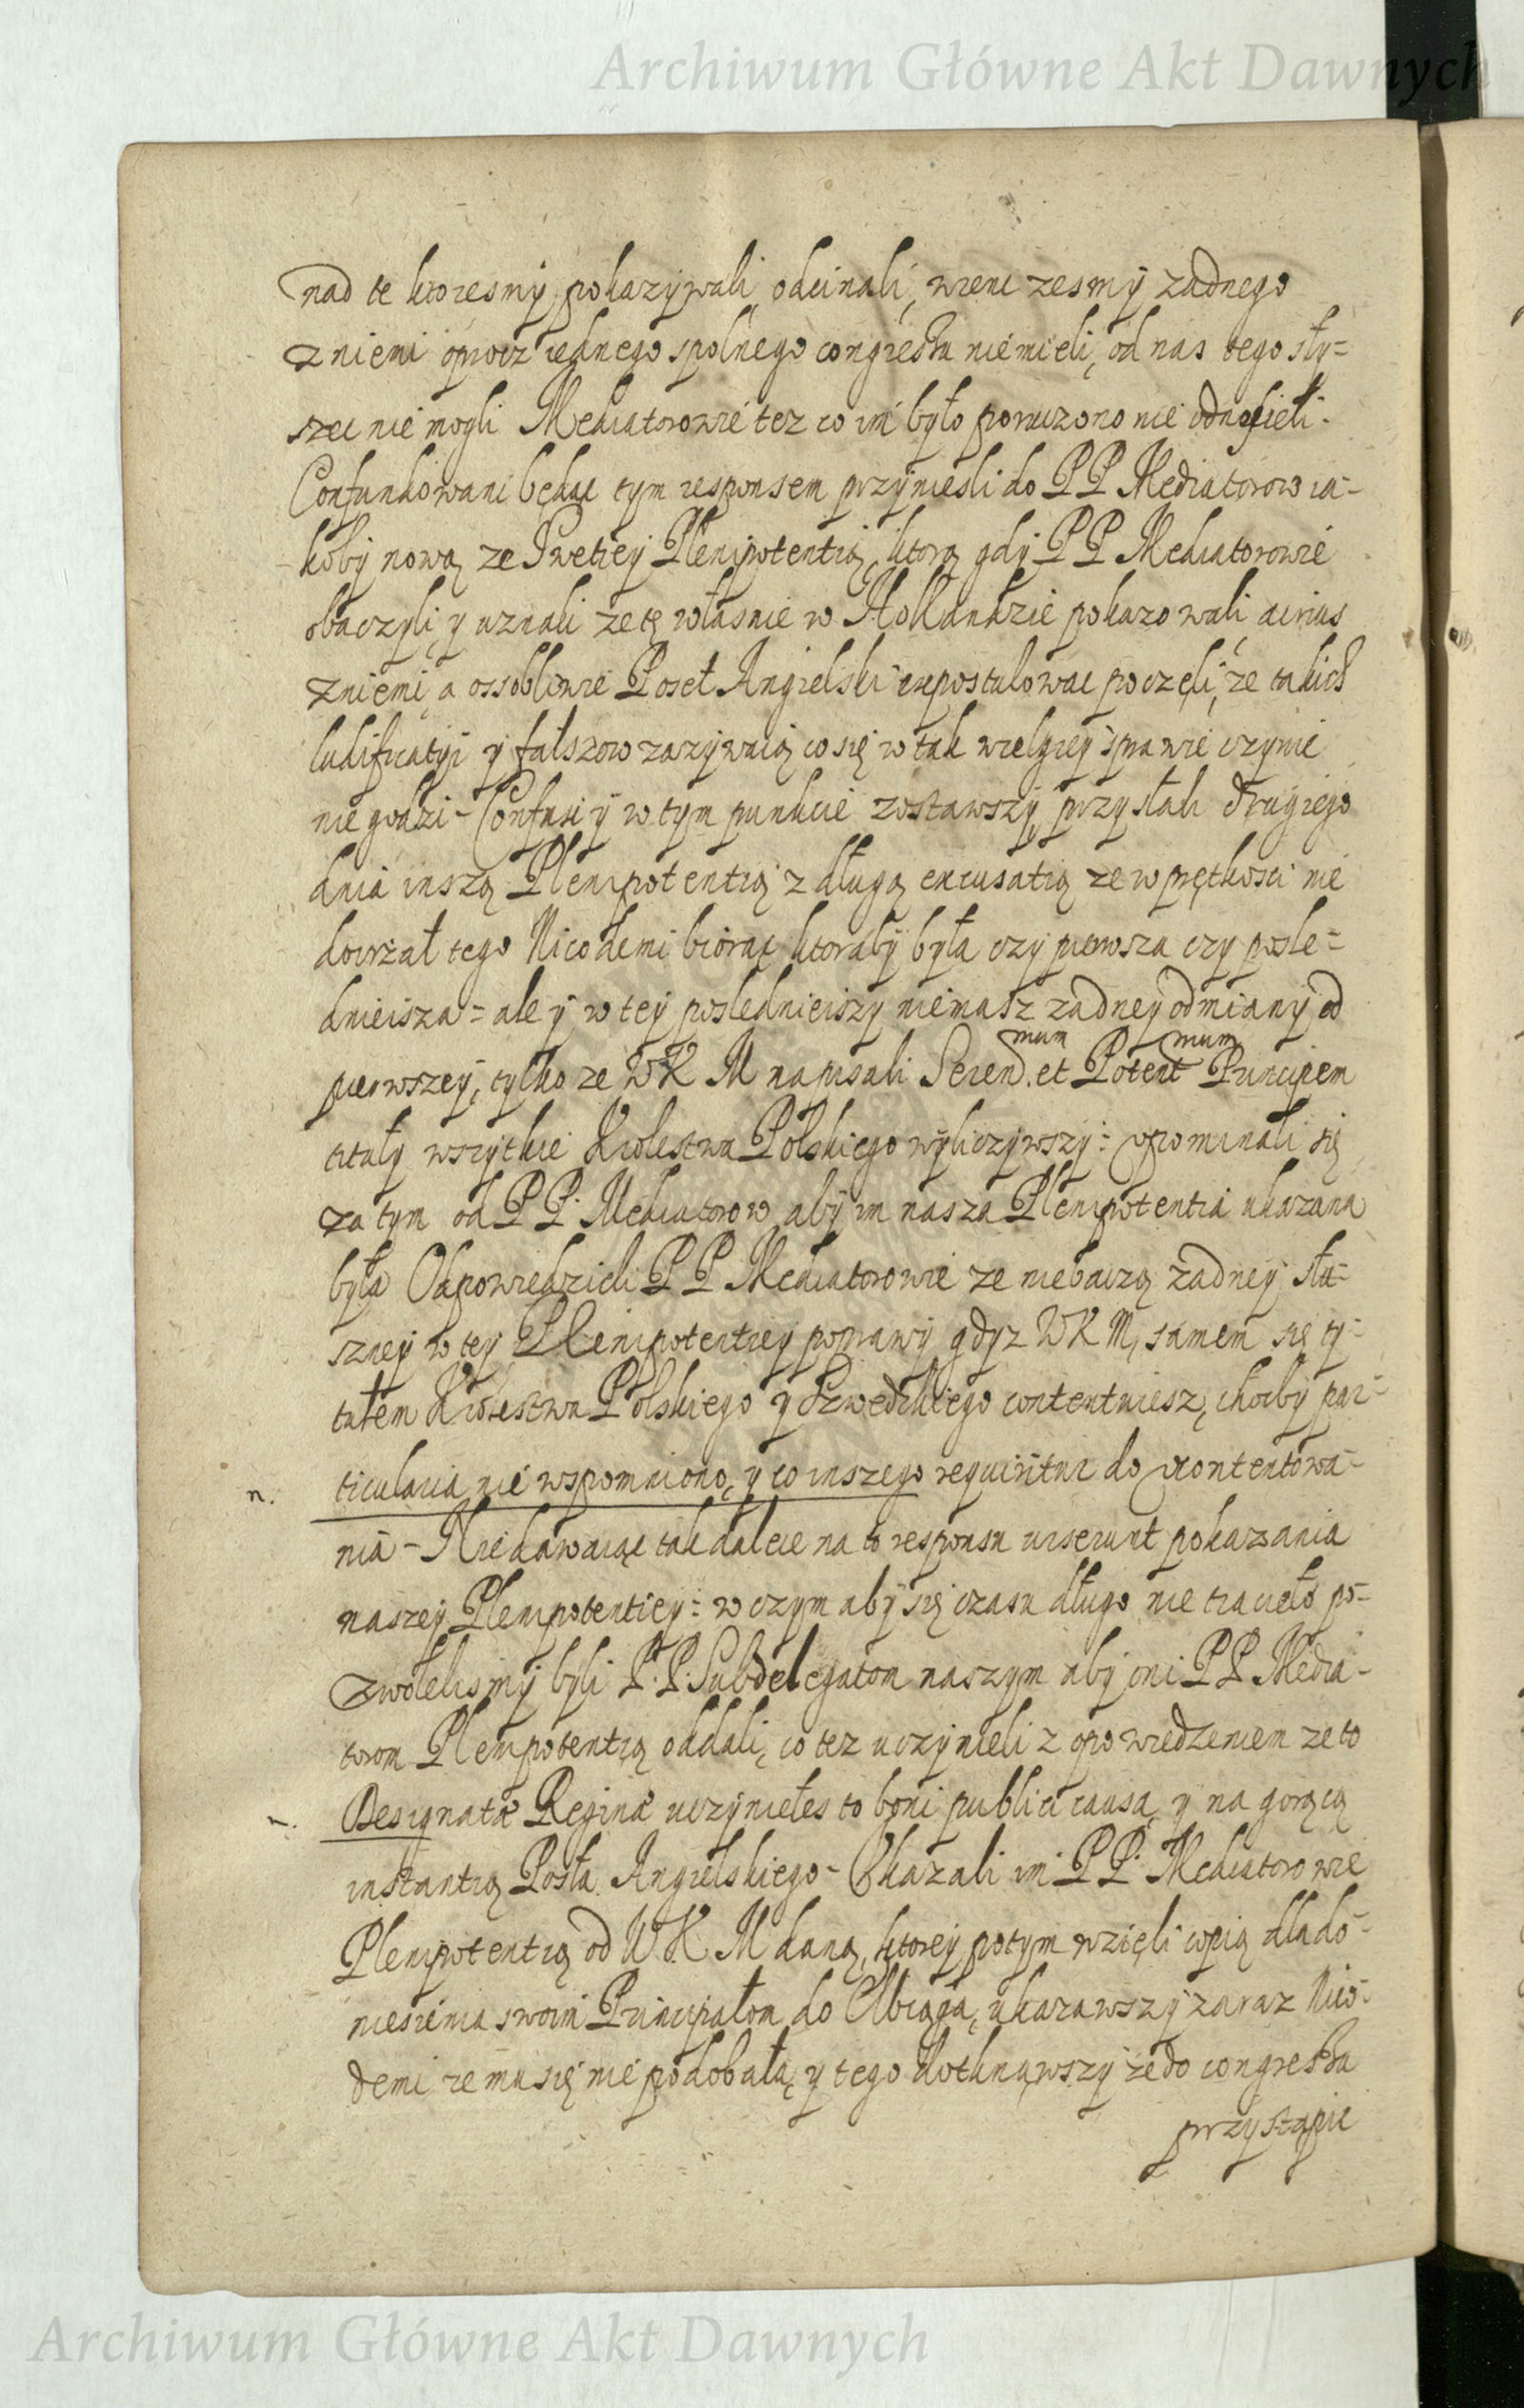 Archiwum Główne Akt Dawnych
nad te ktoresmy pokazywali odcinali, wienc zesmy zadnego
z niemi oprocz iednego spolnego congressu nie mieli, od nas tego sły=
szec nie mogli Mediatorowie tez co im było poruczono nie odnosieli.
Confundowani będąc tym responsem przynieśli do PP Mediatorow ia-
koby nową ze Swetiey Plenipotentią, ktorą gdy PP Mediatorowie
obaczyli y uznali ze tę własnie w Hollandzie pokazowali acrius
z niemi, a ossobliwie Poseł Angielski expostulowac poczęli, że takich
ludificatyi y fałszow zazywaią co się w tak wielgiey sprawie czynic
nie godzi - Confusi y w tym punkcie zostawszy przysłali drugiego
dnia inszą Plenipotentią z długą excusatią ze w prętkosci nie
dojrzał tego Nicodemi biorąc ktoraby była czy pierwsza czy posle=
dnieisza = ale y w tey poslednieiszy niemasz zadney odmiany od
pierwszey, tylko ze WK M napisali Seren.mum et Potentmum Principem
tituły wszytkie Krolestwa Polskiego wyliczywszy: upominali się
za tym od PP. Mediatorow aby im nasza Plenipotentia ukazana
była Odpowiedzieli PP Mediatorowie ze niebaczą żadney słu-
szney w tey Plenipotentiey poprawy gdyz WKM, samem się ty-
tułem Krolestwa Polskiego y Szwedzkiego contentuiesz, chocby par-
n. ticularia nie wspomniono, y co inszego requiritur do ukontentowa-
nia - Nie dawaiąc tak dalece na to responsu urserunt pokazania
naszey Plenipotentiey: w czym aby się czasu długo nie traciełó po-
zwolelismy byli P.P. Subdelegatom naszym aby oni PP Media-
torom Plenipotentią oddali, co tez uczynieli z opowiedzeniem ze to
Designata Regina uczyniełes to boni publici causa, y na gorącą
instantią Posła Angielskiego - Ukazali im PP. Mediatorowie
Plenipotentią od W.K. M daną, ktorey potym wzięli copią dla do-
niesienia swoim Principałom do Elbiąga, ukazawszy zaraz Nico-
demi ze mu się nie podobała, y tego dotknąwszy że do congressu
przystąpic
Archiwum Główne Akt Dawnych